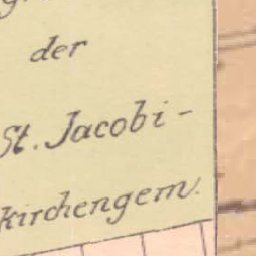 der
St. Jacobi-
kirchengem.